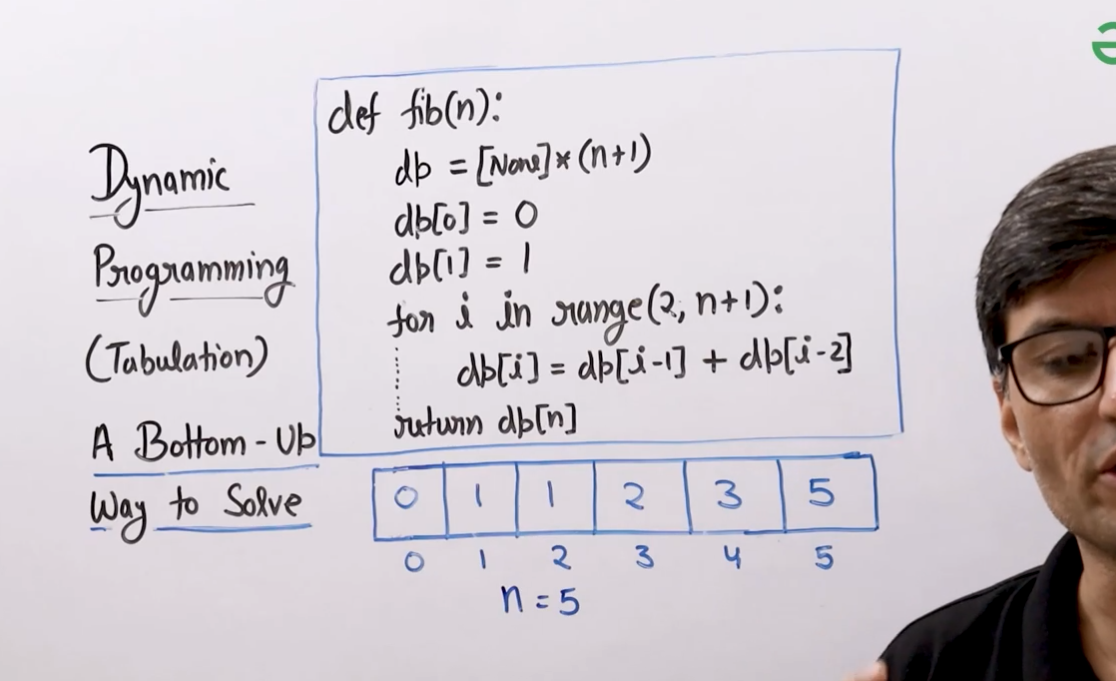 Dynamic
Programming
(Tabulation)
A Bottom-Up
Way to Solve
def fib(n):
dp = [None]*(n+1)
dp[0] = 0
dp[1] = 1
for i in range(2, n+1):
dp[i] = dp[i-1] + dp[i-2]
return dp[n]
0 1 1 2 3 5
0 1 2 3 4 5
n = 5